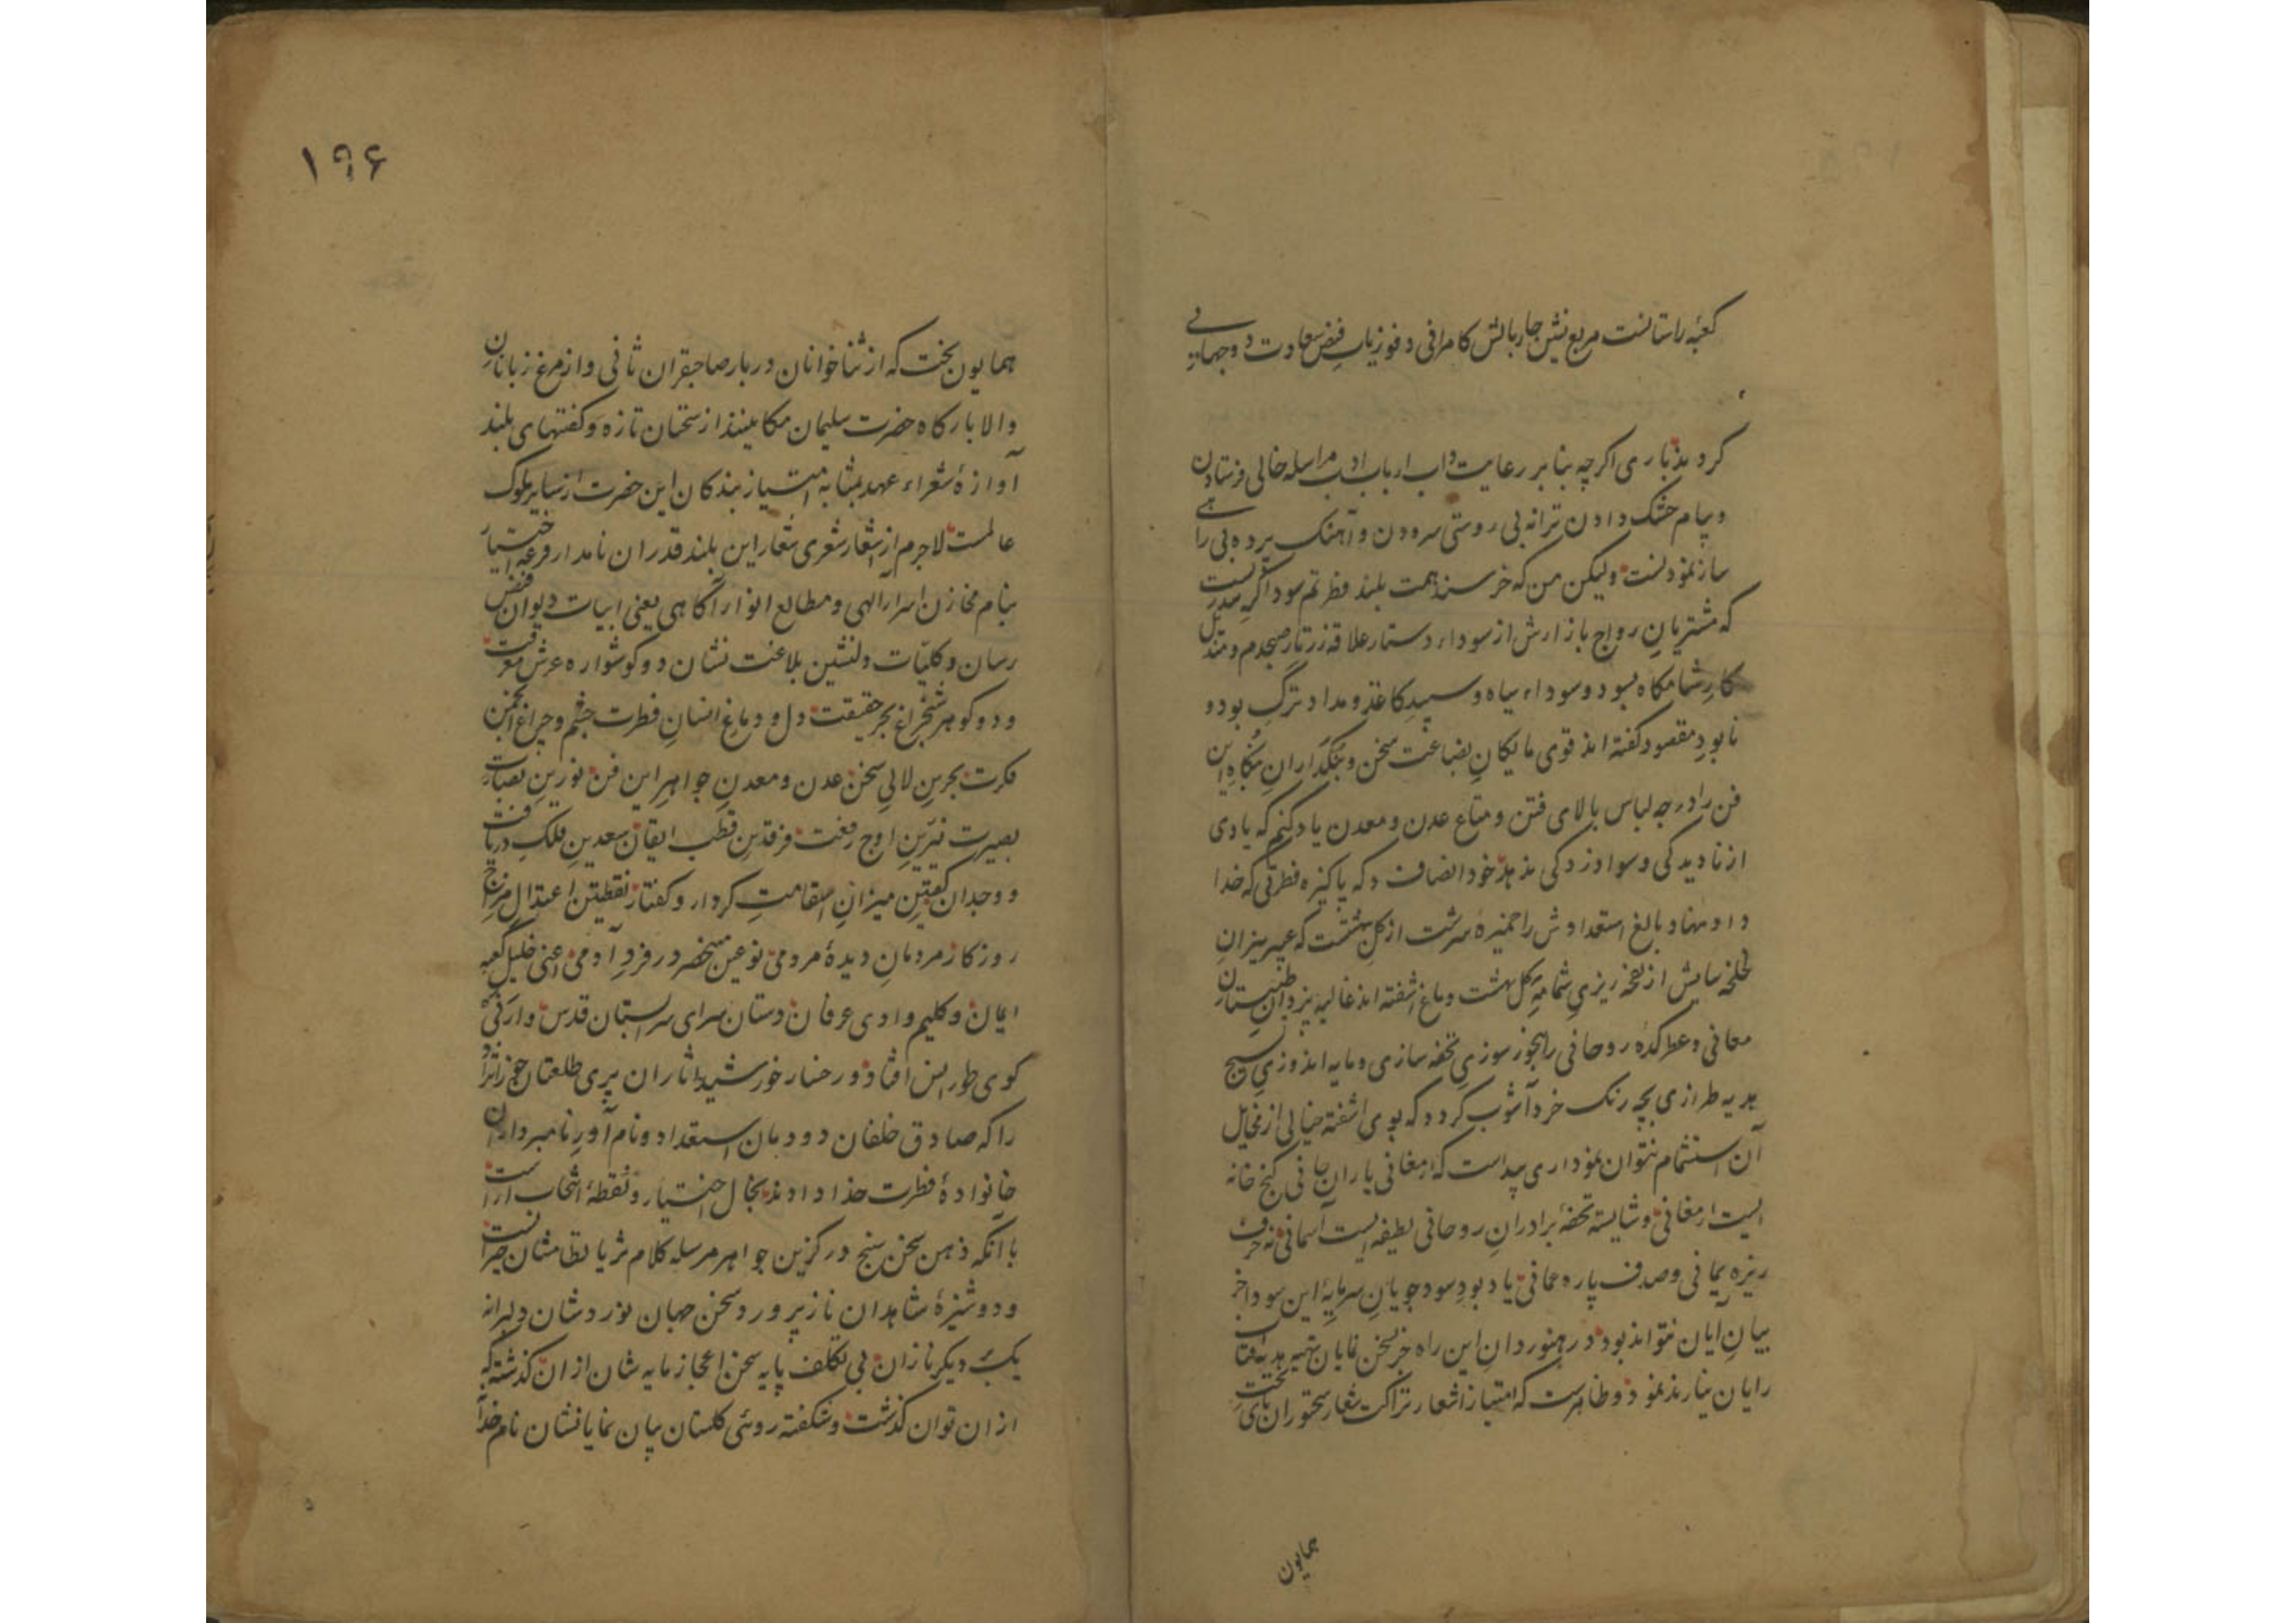 کعبه راستانست مربع نشین چاربالش کامرانی و فوزیاب فیض سعادت دو جهانی
کردید باری اگرچه بنابر رعایت داب ارباب ادب مراسله خالی فرستادن
و پیام خشک دادن ترانه بی روستی سرودن و آهنک پرده بی راهی
ساز نمودنست ولیکن من که خرسند همت بلند فطرتم سوداگریست
که مشتریان رواج بازارش از سوداء دستار علاقه زرتار صبحدم و مندیل
کار شامگاه بسود و سوداء سیاه و سپید کاغذ و مداد ترک بود و
نابود مقصود گفته اند قوی مایکان بضاعت سخن و بنگداران بنگاه این
فن را در چه لباس بالای فتن و متاع عدن و معدن یاد کنم که یادی
از نادیدگی و سوادزدگی ندهد خود انصاف ده که پاکیزه فطرتی که خدا
داد نهاد بالغ استعدادش را خمیره سرشت از گل بهشتست که عبیربیزان
لخلخه سایش از نفخه ریزی شمامه گل بهشت دماغ آشفته اند غالیه بیزدان طبیبستان
معانی و عطرکده روحانی را بخور سوزی تحفه سازی و مایه اندوزی بسیج
هدیه طرازی بچه رنک خرد آشوب کردد که بوی آشفته خیالی از مخایل
آن استشمام نتوان نمود اری پیداست که ارمغانی یاران جانی گنج خانه
ایست ارمغانی و شایسته تحفه برادران روحانی لطیفه ایست آسمانی نه خزف
ریزه یمانی و صدف پاره عمانی یاد بود سودجویان سرمایه این سودا جز
بیان آیان نتواند بود و رهنوردان این راه جز سخن نمایان تهیه هدیه آفتاب
رایان نیارند نمود و ظاهرست که امتیاز اشعار نزاکت شعار سخنوران پای تخت
همایون
۱۹۶
همایون بخت که از ثناخوانان دربار صاحبقران ثانی و از مرغ زبانان
والا بارگاه حضرت سلیمان مکانیند از سخنان تازه و گفتهای بلند
آوازهٔ شعراء عهد بمثابه امتیاز بندگان این حضرت از سایر ملوک
عالمست لاجرم از اشعار شعری شعار این بلند قدران نامدار قرعه اختیار
بنام مخازن اسرار الهی و مطالع انوار آگاهی یعنی ابیات دیوان فیض
رسان و کلیات دلنشین بلاغت نشان دو گوشواره عرش معرفت
و دو گوهر شبچراغ بحر حقیقت دل و دماغ انسان فطرت چشم و چراغ انجمن
فکرت بحرین لالی سخن عدن و معدن جواهر این فن نورین بصارت
بصیرت نیّرین اوج رفعت فرقدین قطب ایقان سعدین فلک دریافت
و وجدان کفتین میزان استقامت کردار و گفتار نقطتین اعتدال مزاج
روزکار مردمان دیدهٔ مردمی نوعین منحصر در فرد آدمی اعنی خلیل کعبه
ایمان و کلیم وادی عرفان دستان سرای سرابستان قدس و ارنی
کوی طور انس افتاد و رخسار خورشید آثاران پری طلعتان
را که صادق خلفان دودمان استعداد و نام آور نامبرداران
خانوادهٔ فطرت خداداداند بخال اختیار و نقطهٔ انتخاب آراست
با آنکه ذهن سخن سنج در گزین جواهر مرسله کلام ثریا نظامشان حیرانست
و دوشیزهٔ شاهدان نازپرورد سخن جهان نوردشان دلبرانه
یک بیک دیگر نازان بی تکلف پایه سخن اعجاز مایه شان از ان گذشته که
از ان توان گذشت و شگفته روئی گلستان بیان نمایانشان نام خدا